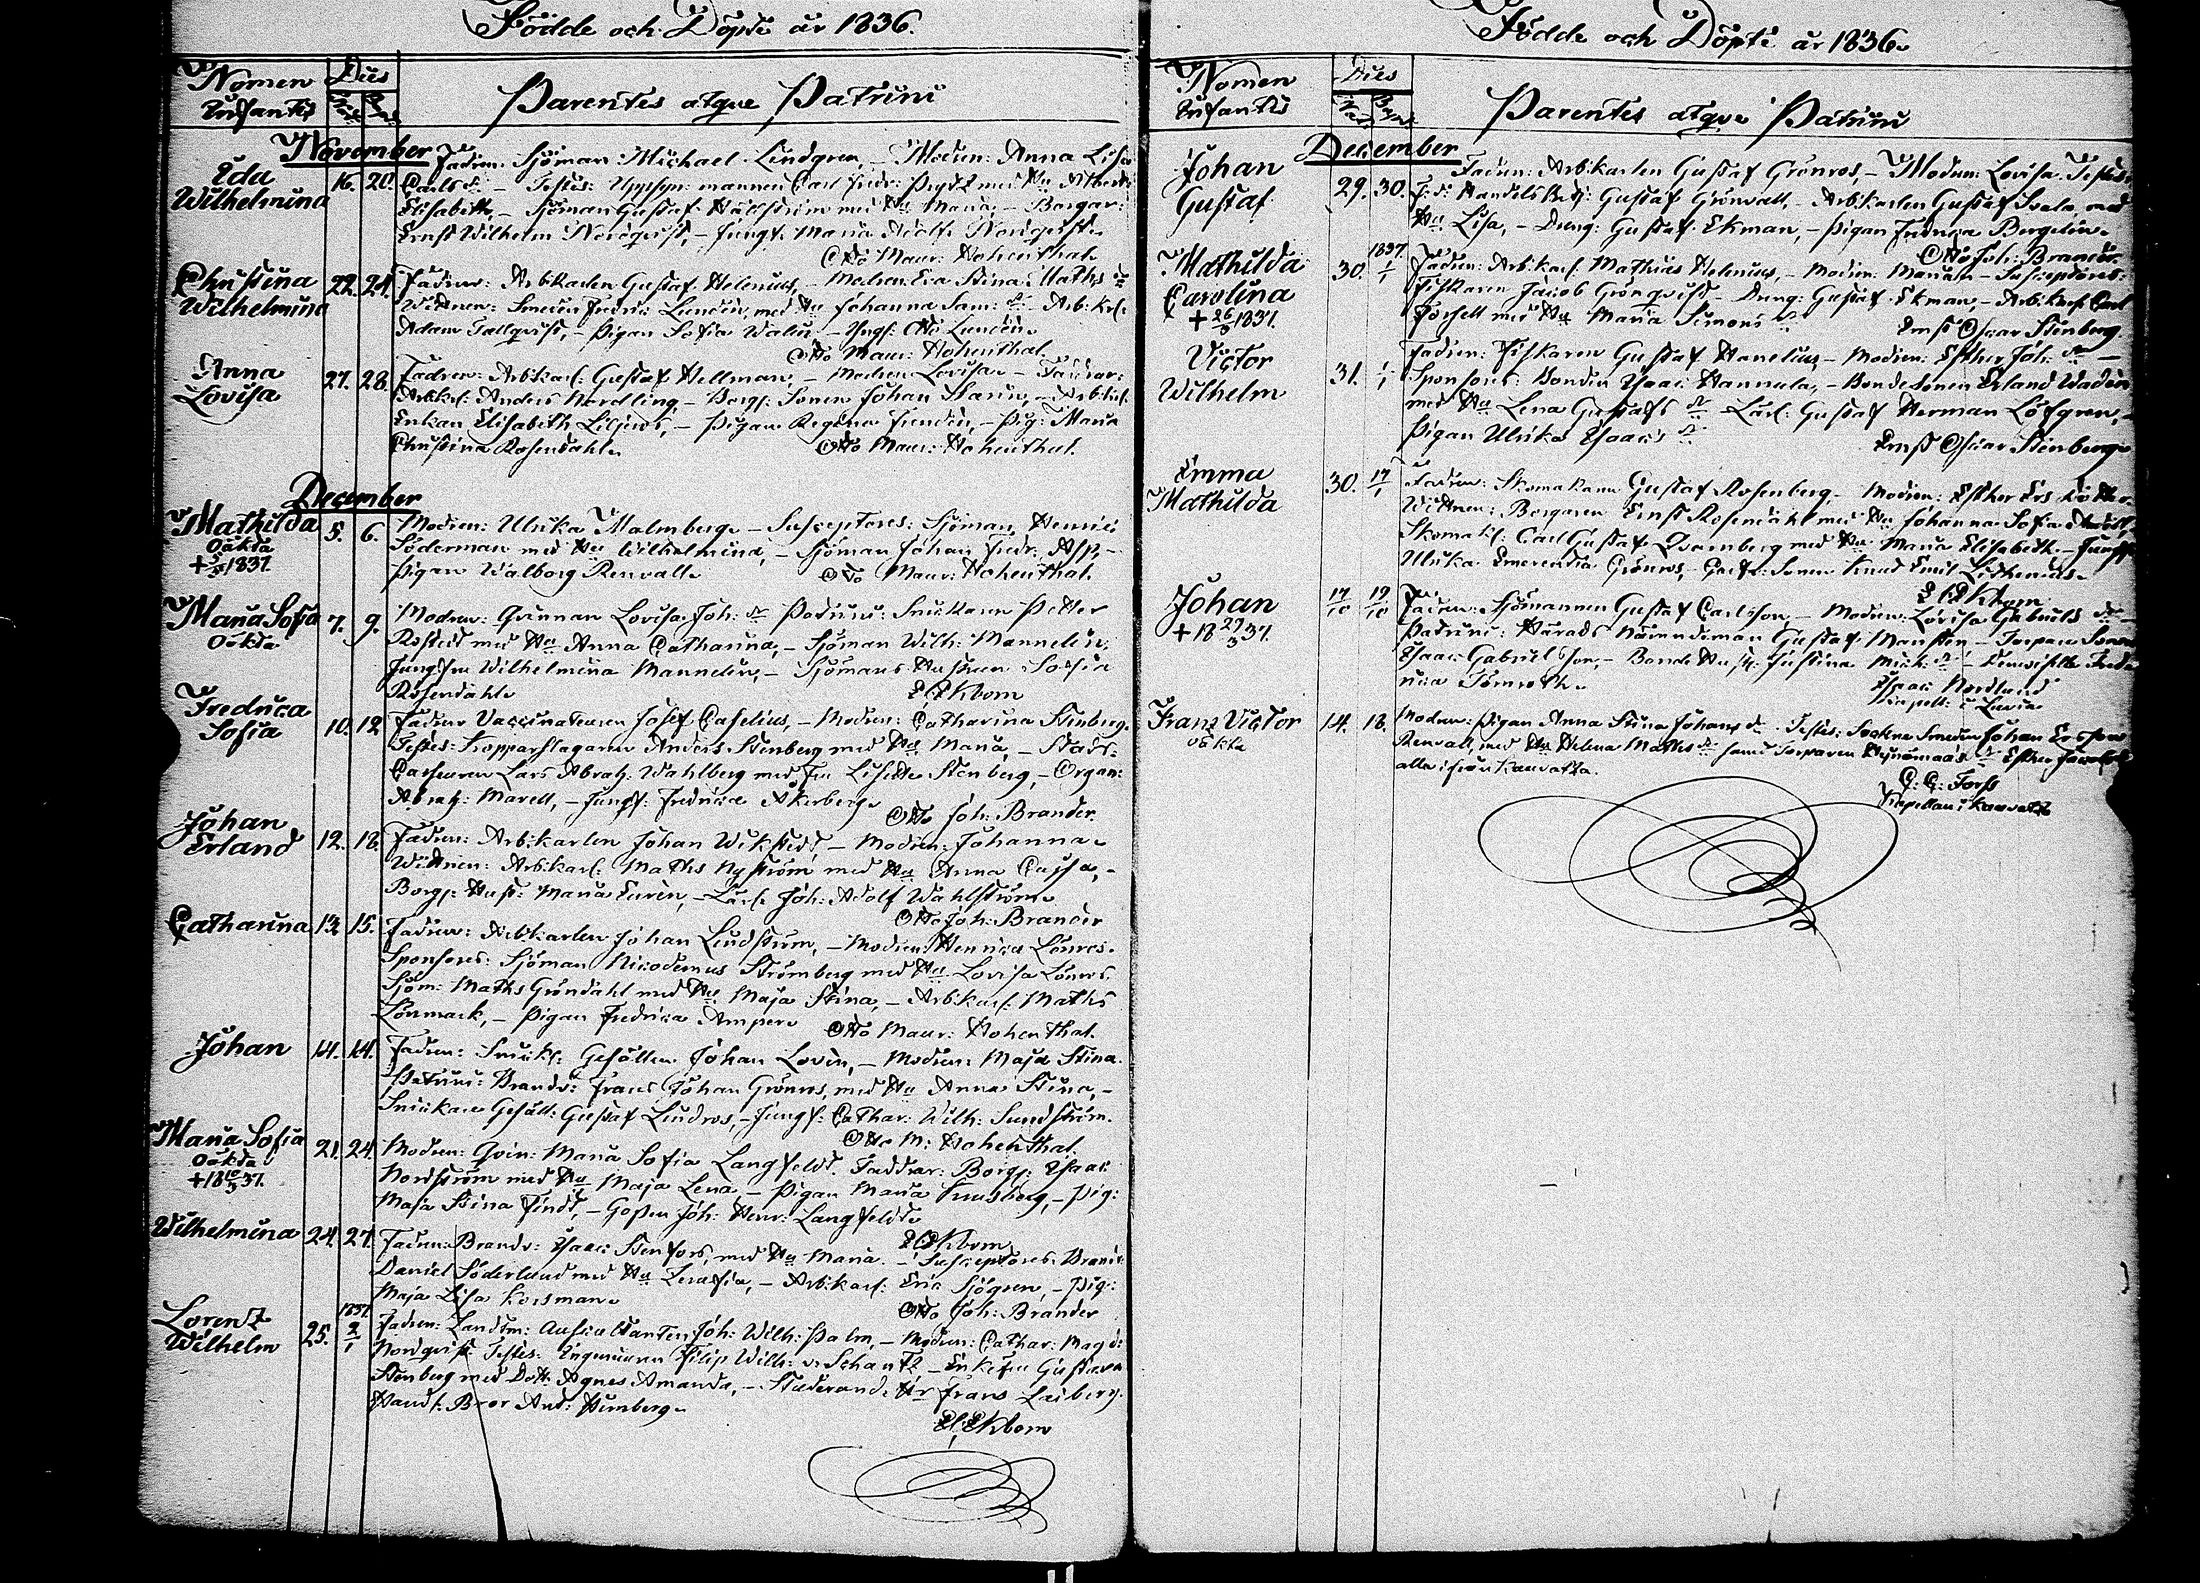 Födde och Döpte år 1836.
Nomen Infantis
Dies
Parentes atque Patrini
November
Ida Wilhelmina
16. 20.
Fadren: Sjöman Michael Lindgren, – Modren: Anna Lisa
Carls dr – Testes: Carl Fredr: med Hu Albert:
Elisabeth, – Sjöman Gustaf Hällström med Hu Maria, – Borgar:
Ernst Wilhelm Nordqvist, – Jungf: Maria Adolf: Nordqvist.
Otto Maur: Hohenthal.
Christina Wilhelmina
22. 24.
Fadren: Arb:karlen Gustaf Helenius, – Modren: Eva Stina Maths dr
Wittnen: Smeden Fredric Lundén, med Hu Johanna Sam: dr – Arb:krl:
Adam Tallqvist, – Pigan Sofia Walin – Yngl: Otto Lundén.
Otto Maur: Hohenthal.
Anna Lovisa
27. 28.
Fadren: Arb:karl: Gustaf Hellman, – Modren Lovisa – Faddrar:
Arb:krl: Anders Nordling, – Borg: Sonen Johan Starin, – Arb:krl:
Enkan Elisabeth Liljeros, – Pigan Regina Fundén, – Pig: Maria
Christina Rosendahl.
Otto Maur: Hohenthal.
December
Mathilda
Oäkta
+ 5/5 1837.
5. 6.
Modren: Ulrika Malmberg – Susceptores: Sjöman Henric
Söderman med Hu Wilhelmina, – Sjöman Johan Fredr: Asp, –
Pigan Walborg Renvall.
Otto Maur: Hohenthal.
Maria Sofia
Oäkta
7. 9.
Modren: Qvinnan Lovisa Joh: dr Patrini: Snickaren Petter
Rostedt med Hu Anna Catharina, – Sjöman Wilh: Mannelin,
Jungfru Wilhelmina Mannelin, – Sjömans Hustrun Sofia
Rosendahl.
Ekbom
Fredrica Sofia
10. 12
Fadren Vaccinateuren Josef Caselius, – Modren: Catharina Stenberg.
Testes: Kopparslagaren Anders Stenberg med Hu Maria, – Stads
Casseuren Lars Abrah: Wahlberg med Fru Lisette Stenberg, – Organ:
Abrah: Marell, – Jungf: Fredrica Åkerberg.
Otto Joh: Brander.
Johan Erland
12. 18.
Fadren: Arb:karlen Johan Wikstedt, – Modren: Johanna.
Wittnen: Arb:karl: Maths Nyström med Hu Anna Cajsa, –
Borg: Hust: Maria Eurén, – Lärl: Joh: Adolf Wahlström.
Otto Joh: Brander
Catharina
13. 15.
Fadren: Arb:karlen Johan Lindström, – Modren: Henrica Lönros.
Sponsores: Sjöman Nicodemus Strömberg med Hu Lovisa Lönros.
Sjöm: Maths Gröndahl med Hu Maja Stina, – Arb:karl: Maths
Lönmark, – Pigan Fredrica Amper.
Otto Maur: Hohenthal.
Johan
14. 14.
Fadren: Snick: Gesällen Johan Lovén, – Modren: Maja Stina
Patrini: Brandv: Frans Johan Grönros, med Hu Anna Stina, –
Snickare Gesäll: Gustaf Lindros, – Jungf: Cathar: Wilh: Sundström.
Otto M: Hohenthal.
Maria Sofia
Oäkta
+18 37.
21. 24.
Modren: Qvin: Maria Sofia Langfeldt. Faddrar: Borg: Isaac
Nordström med Hu Maja Lena – Pigan Maria Krusberg, – Pig:
Maja Stina Findt, – Gossen Joh: Henr: Langfeldt.
Ekbom
Wilhelmina
24. 27.
Fadren: Brandv: Isaac Stenfors, med Hu Maria. – Susceptores: Brandv:
Daniel Söderlund med Hu Serafia, – Arb:karl: Eric Sjögren, – Pig:
Maja Lisa Korsman.
Otto Joh: Brander
Lorentz Wilhelm
25. 1837 2/1
Fadren: Landtm: Auscultanten Joh: Wilh: Palm, – Modren: Cathar: Magd:
Nordqvist. Testes: Ingenieuren Filip Wilh: v: Schantz – Enkefru Gustava
Stenberg med Dott: Agnes Amanda, – Studerand: Hr Frans Laiberg.
Handl: Bror Ant: Hemberg.
Ekbom
Födde och Döpte år 1836.
Nomen Infantis
Dies
Parentes atque Patrini
December
Johan Gustaf
29. 30.
Fadren: Arb:karlen Gustaf Grönros, – Modren: Lovisa. Testes:
Handels Betj: Gustaf Grönvall, – Arb:karlen Gustaf Svala, med
Hu Lisa, – Dräng: Gustaf Ekman, – Pigan Fredrica Bergelin.
Otto Joh: Brander.
Mathilda Carolina
+ 26 1837.
30. 1837. 1/1
Fadren: Arb:karl: Mathias Helenius, – Modren: Maria – Susceptores:
Fiskaren Jacob Grönqvist – Dräng: Gustaf Ekman, – Arb:karl: Carl
Forsell med Hu Maria Simons dr
Ernst Oscar Stenberg.
Victor Wilhelm
31. 1/1
Fadren: Fiskaren Gustaf Hanelius – Modren: Esther Joh: dr –
Sponsores: Bonden Isaac Hannula, – Bonde Sonen Erland Wadén
med Hu Lena Gustafs dr Lärl: Gustaf Herman Löfgren, –
Pigan Ulrika Isaacs dr
Ernst Oscar Stenberg.
Emma Mathilda
30. 17/1
Fadren: Skomakaren Gustaf Rosenberg, – Modren: Esther
Wittnen: Borgaren Ernst Rosendahl med Hu Johanna Sofia
Skomak: Carl Gustaf Qvarnberg med Hu Maria Elisabeth – Jungf:
Ulrika Emerentia Grönros, Sonen Knut Emil Lithenius.
Ekbom
Johan
+18 29/3 37.
17/10 19/10
Fadren: Sjömannen Gustaf Carlsson, – Modren: Lovisa Gabriels dr
Patrini: Härads Nämndeman Gustaf Monstén – Torpare Sonen
Isaac Gabrielsson, – Bonde Hust: Justina Mich: dr – Demoiselle Fred
rica Törnroth.
Isaac Nordlund
Kapell: i Lavia
Frans Victor
oäkta
14. 18.
Modren: Pigan Anna Stina Johans dr. Testes: Sockne Smeden Johan Ersson
Renvall, med Hu Helena Maths dr samt Torparen Esther
alla ifrån Kauvatsa.
C: G: Forss
Kapellan i Kauvatsa